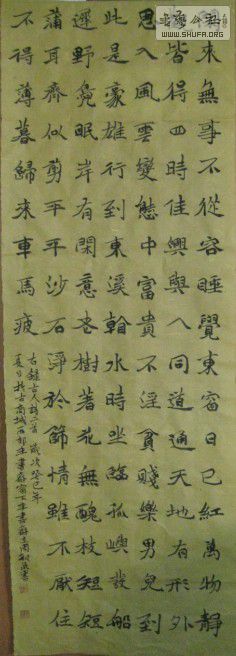 閑來無事不從容睡覺東窗日已紅萬物靜
觀皆得四時佳興與人同道通天地有形外
思入風雲變態中富貴不淫貧賤樂男兒到
此是豪雄行到東溪看水時坐臨孤嶼發船
遲野鳧眠岸有閑意老樹著花無醜枝短短
蒲耳齊似剪平平沙石淨於篩情雖不厭住
不得薄暮歸來車馬疲
右錄古人詩二首歲次癸巳年
夏日於古商城西部
WWW.SHUFA.ORG